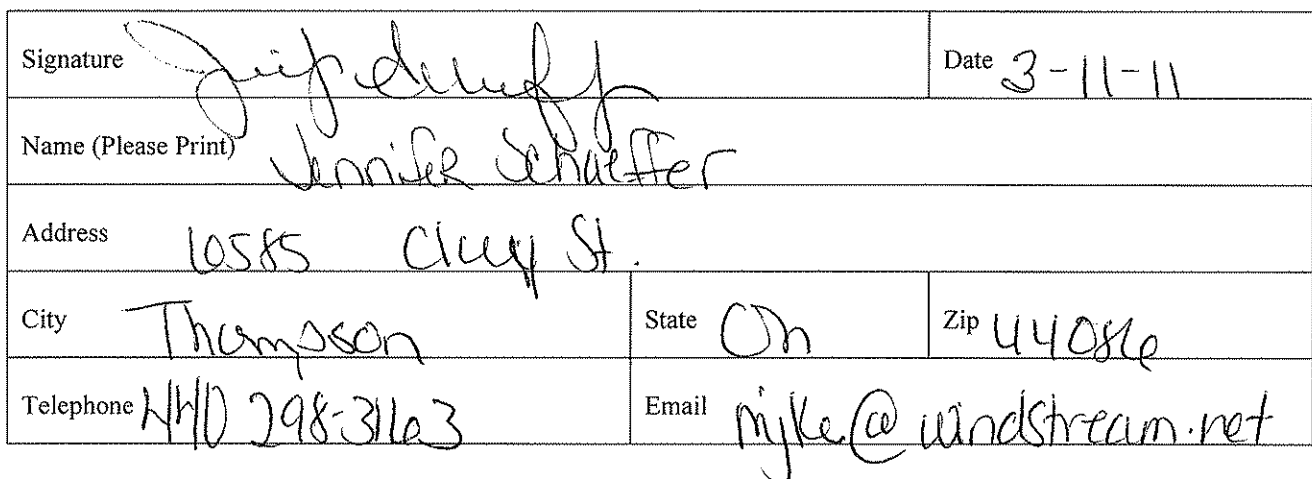 Signature Date 3-11-11
Name (Please Print) Jennifer Schaeffer
Address St.
City Thompson State Oh Zip 44086
Telephone 440 298-3163 Email mjke@windstream.net